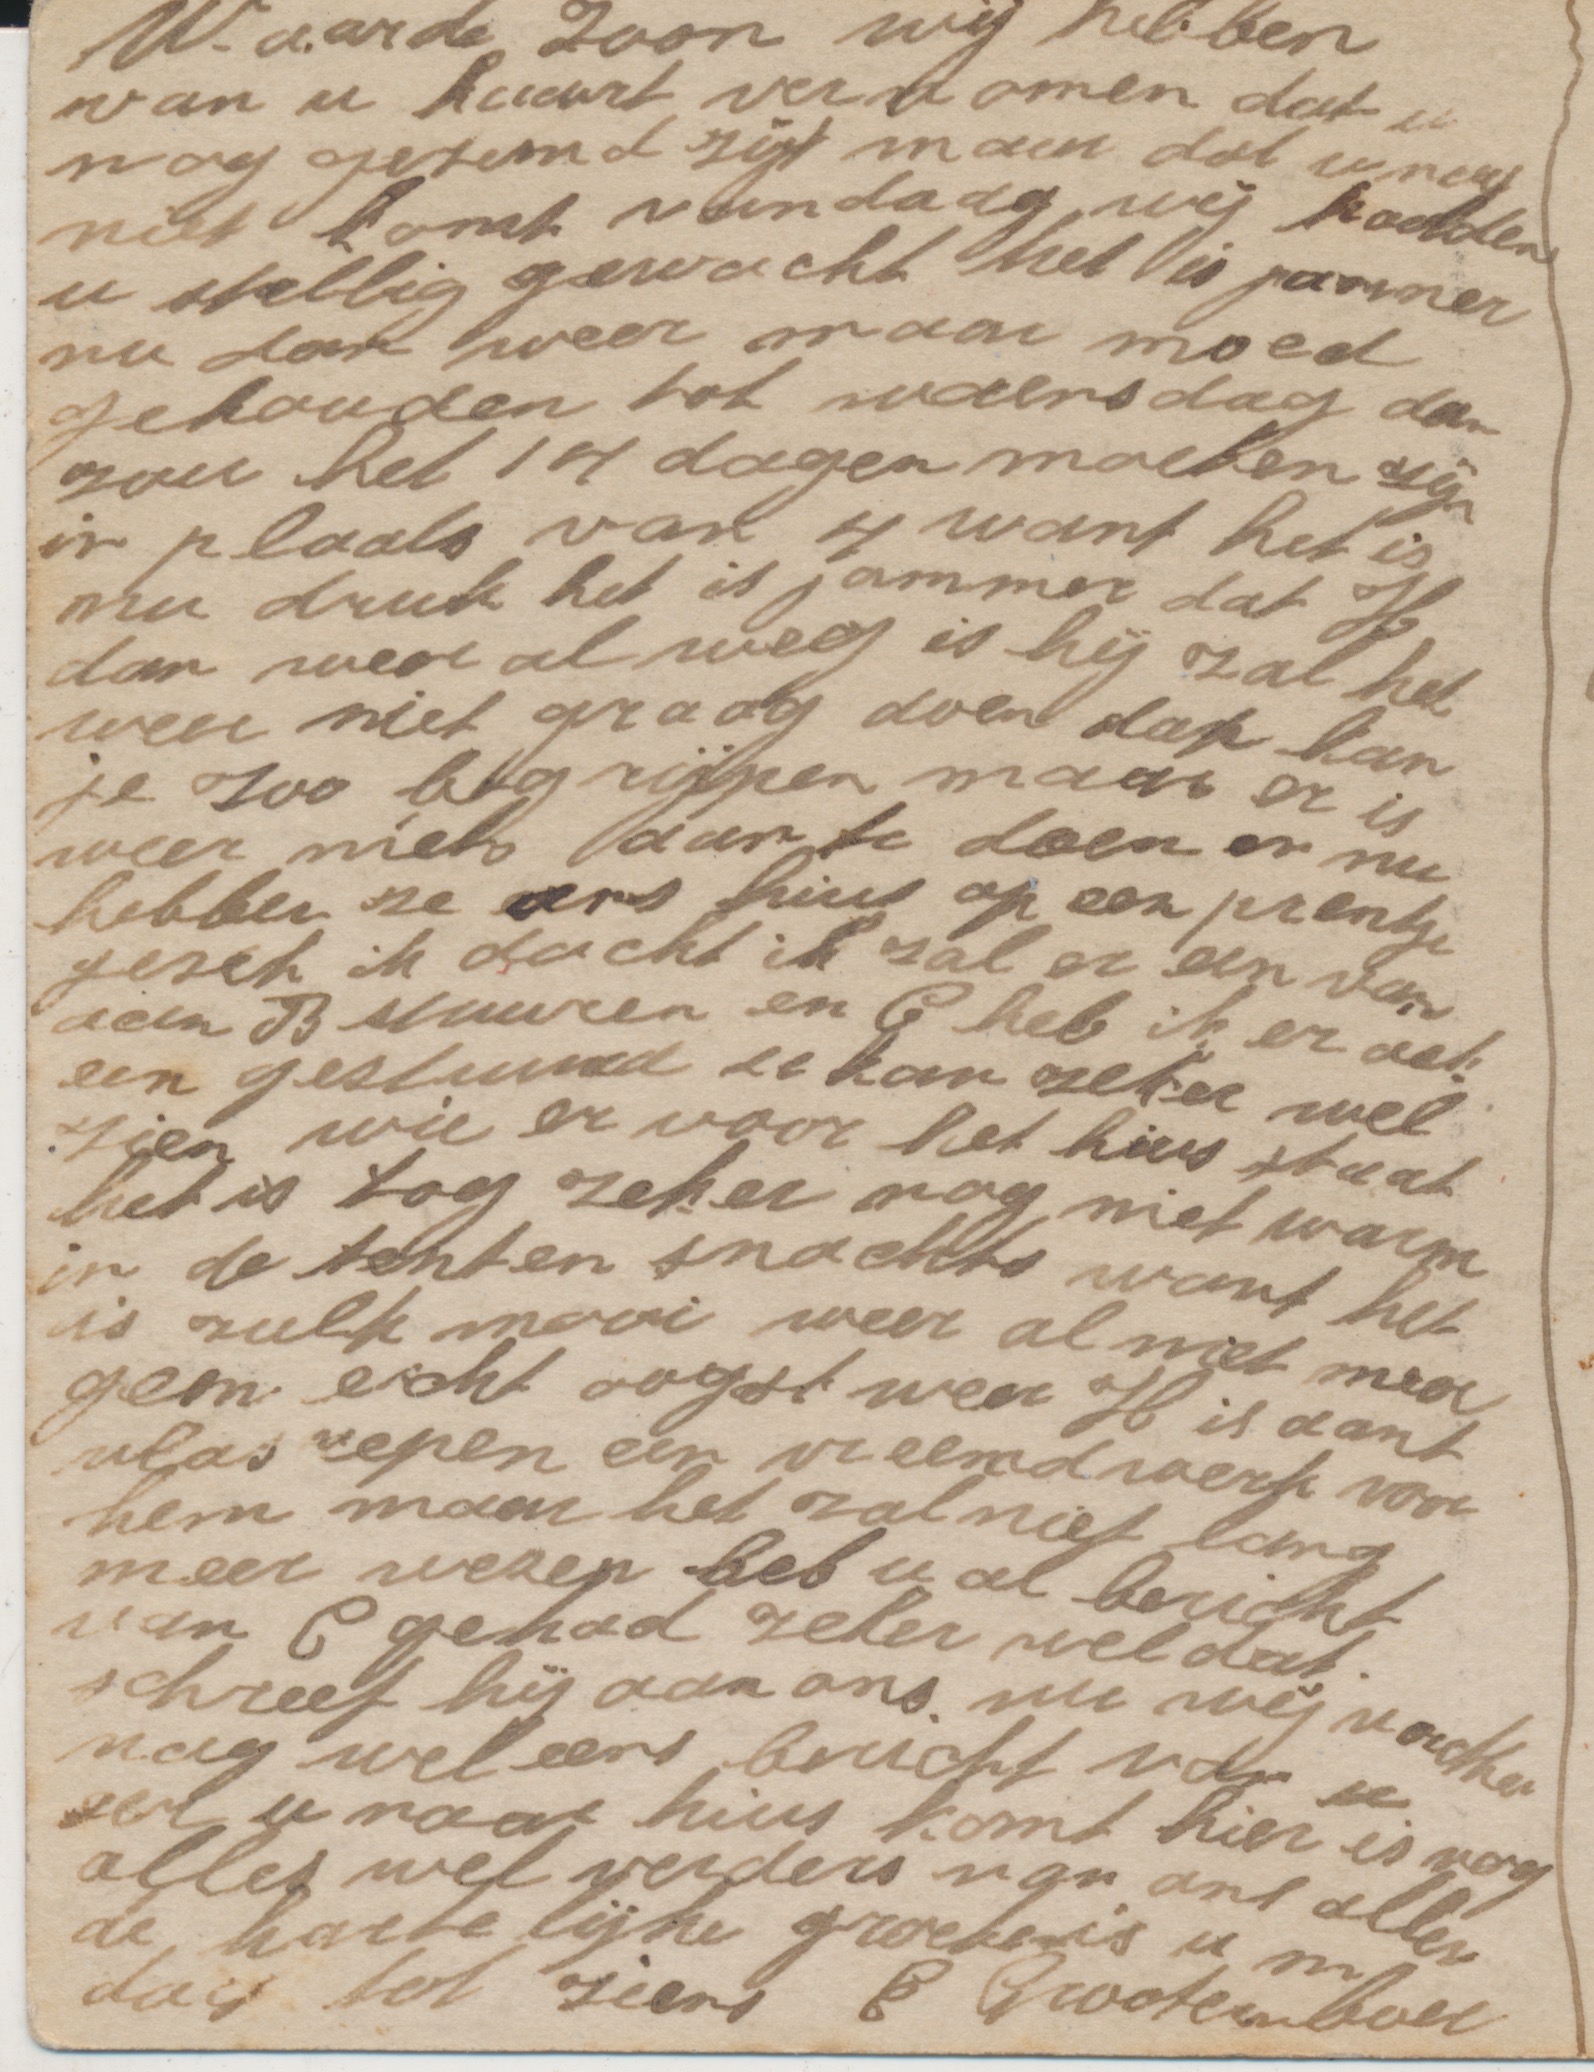 Waarde Zoon wij hebben
van u kaart vernomen dat u
nog gezond zijt maar dat u nou
niet komt vandaag wij hadden
u stellig gewacht het is jammer
nu dan weer maar moed
gehouden tot woensdag dan
zou het 14 dagen moeten zijn
in plaats van 4 want het is
nu druk het is jammer dat H
dan weer al weg is hij zal het
weer niet graag doen dat kan
je zoo begrijpen maar er is
weer niets aan te doen en nu
hebben ze ons huis op een prentje
gezet ik dacht ik zal er een van
aan B stuuren en C heb ik er ook
een gestuurd u kan zeker wel
zien wie er voor het huis staat
het is tog zeker nog niet warm
in de tenten snachts want het
is zulk mooi weer al niet meer
geen echt oogst weer H is aant
vlas repen een vreemd werk voor
hem maar het zal niet lang
meer wezen heb u al bericht
van C gehad zeker wel dat
schreef hij aan ons. nu wij wachten
nog wel eens bericht van u
eer u naar huis komt hier is nog
alles wel verders van ons allen
de hartelijke groetenis u m
dag tot ziens C Grootenboer